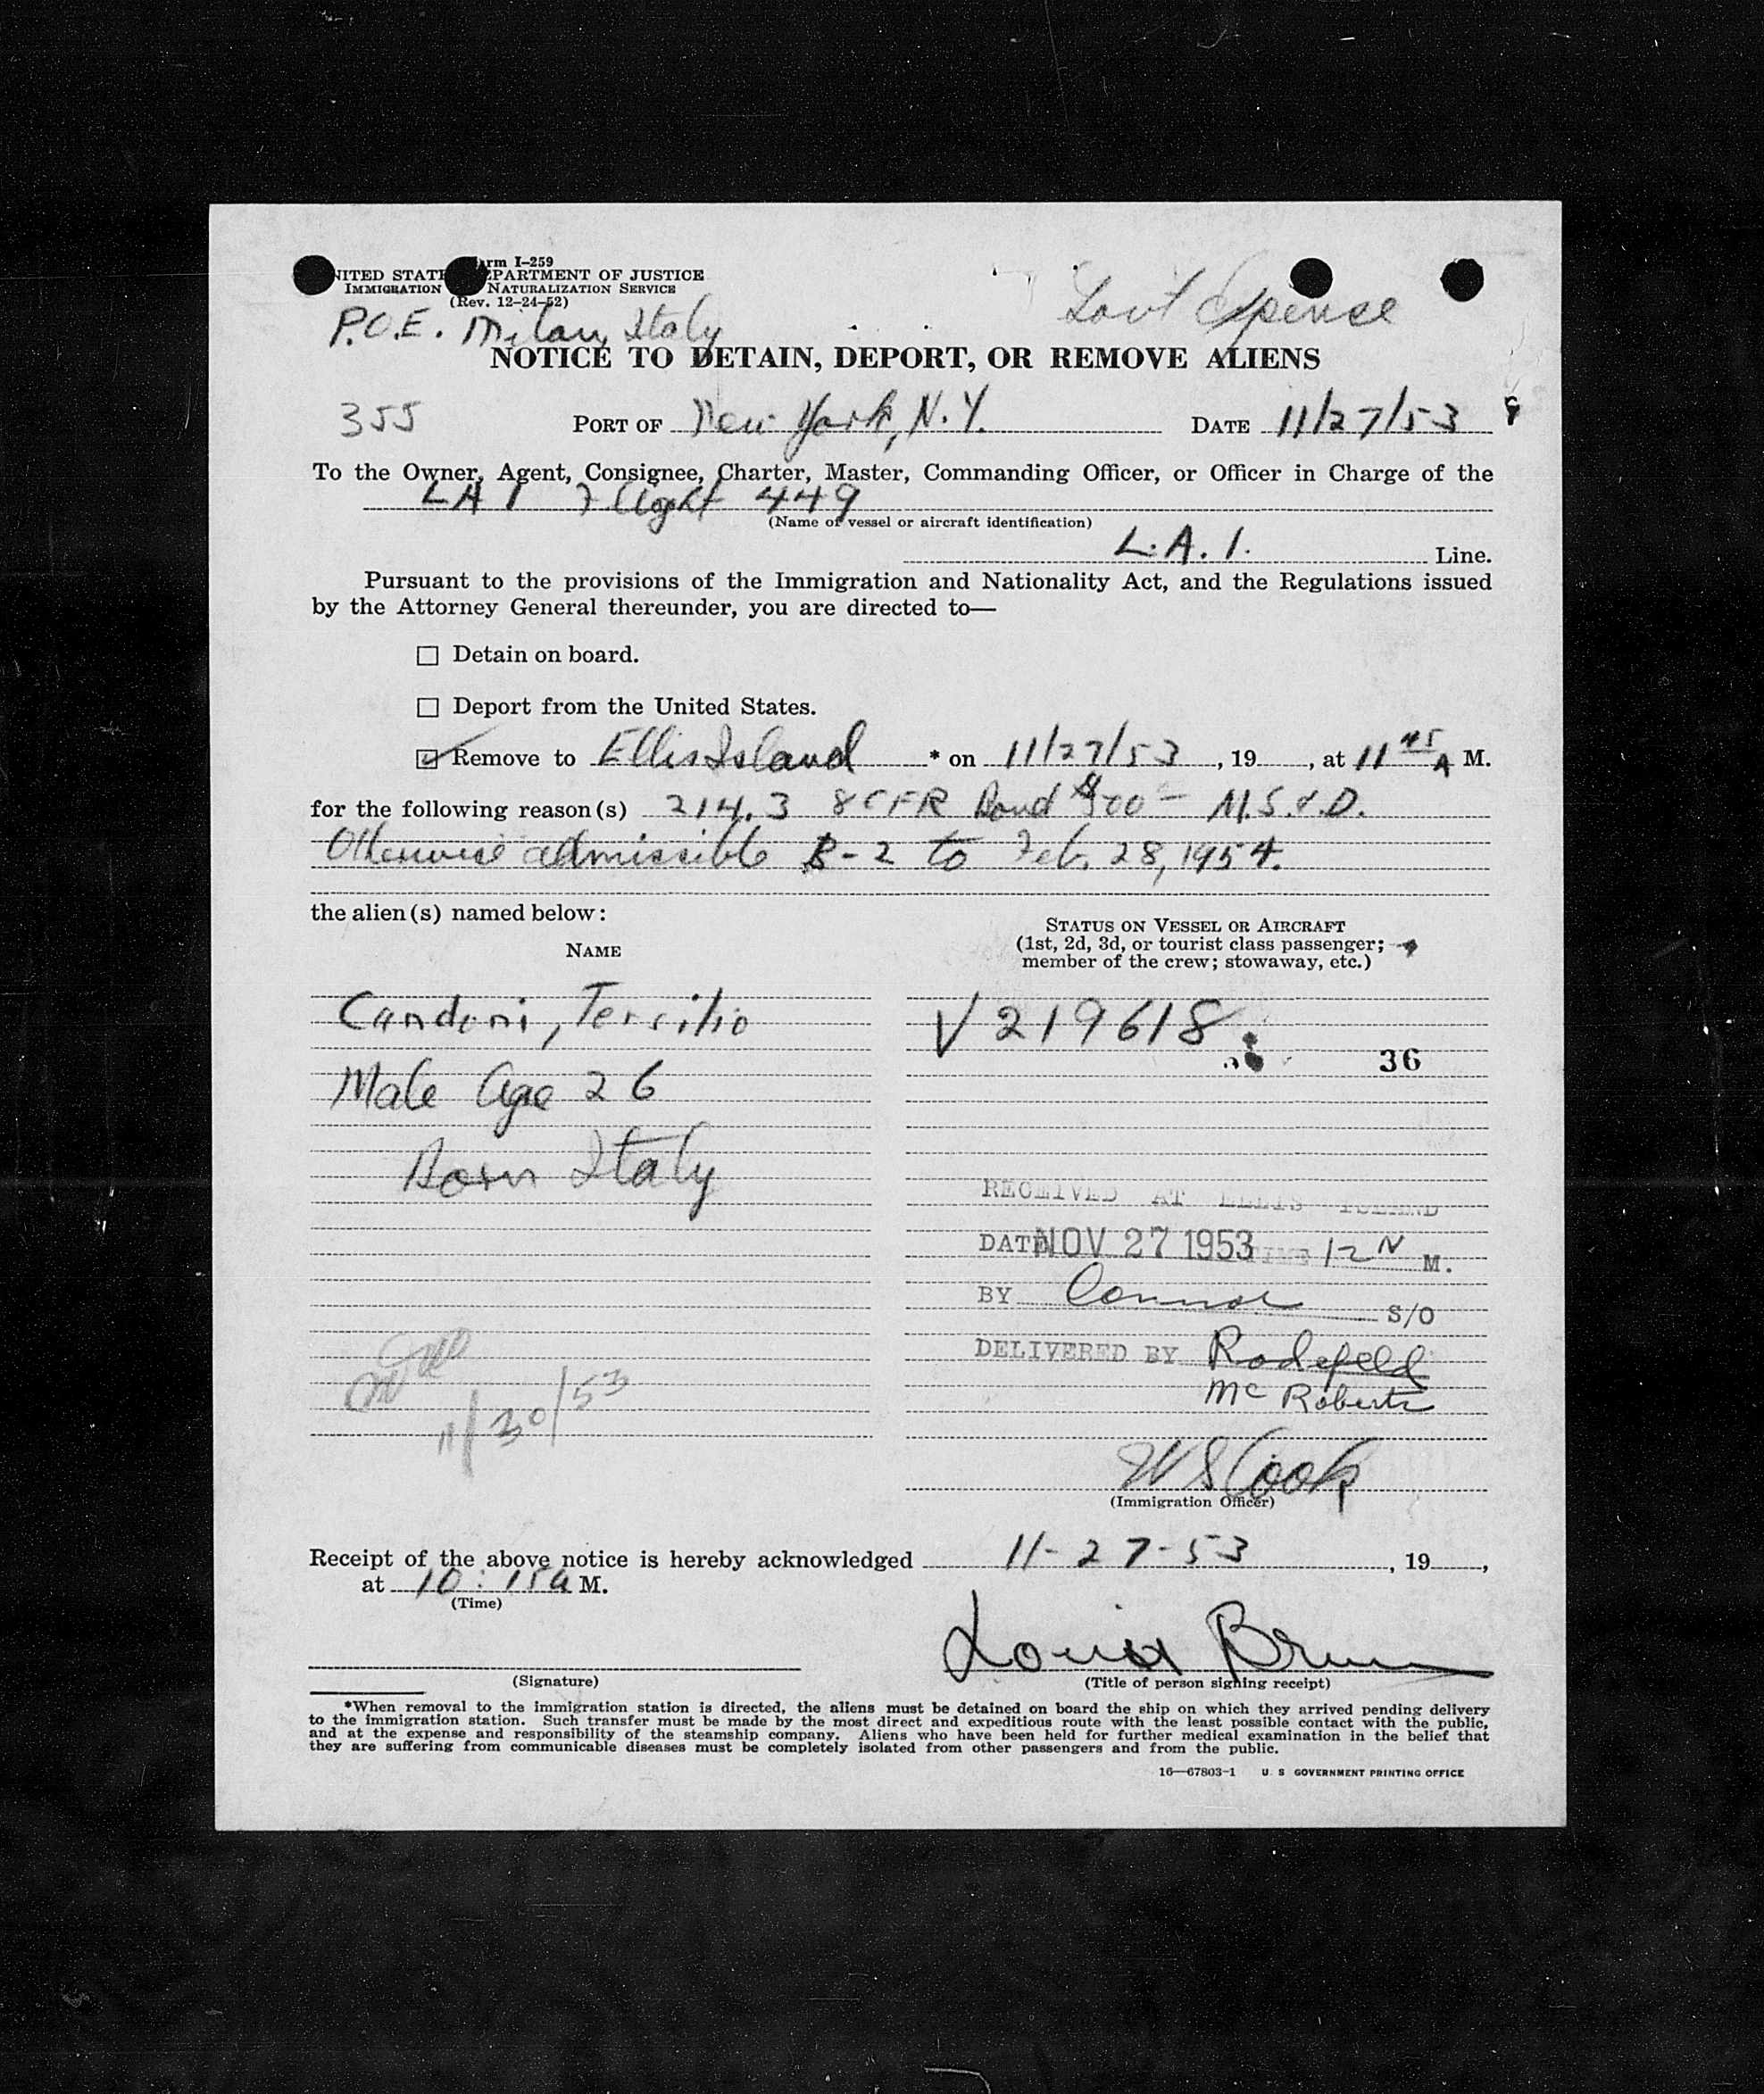 Form I-259
UNITED STATES DEPARTMENT OF JUSTICE
IMMIGRATION NATURALIZATION SERVICE
(Rev. 12-24-52)
P.O.E. Milan, Italy
Govt Expense
NOTICE TO DETAIN, DEPORT, OR REMOVE ALIENS
355 PORT OF New York, N.Y. DATE 11/27/53
To the Owner, Agent, Consignee, Charter, Master, Commanding Officer, or Officer in Charge of the
LAI Flight 449
(Name of vessel or aircraft identification)
L.A.I. Line.
Pursuant to the provisions of the Immigration and Nationality Act, and the Regulations issued
by the Attorney General thereunder, you are directed to—
☐ Detain on board.
☐ Deport from the United States.
☑ Remove to Ellis Island * on 11/27/53, 19, at 11 45 A M.
for the following reason(s) 214.3 8 CFR Bond $500 M.S.&D.
Otherwise admissible B-2 to Feb. 28, 1954.
the alien(s) named below:
NAME
STATUS ON VESSEL OR AIRCRAFT
(1st, 2d, 3d, or tourist class passenger;
member of the crew; stowaway, etc.)
Candoni, Tersilio
V 219618
36
Male Age 26
Born Italy
RECEIVED AT ELLIS ISLAND
DATE NOV 27 1953 TIME 12 N M.
BY Connor S/O
DELIVERED BY Rodefeld
McRoberts
11/30/53
W S Cook
(Immigration Officer)
Receipt of the above notice is hereby acknowledged 11-27-53, 19,
at 10:15a M.
(Time)
Louis
(Signature)
(Title of person signing receipt)
*When removal to the immigration station is directed, the aliens must be detained on board the ship on which they arrived pending delivery
to the immigration station. Such transfer must be made by the most direct and expeditious route with the least possible contact with the public,
and at the expense and responsibility of the steamship company. Aliens who have been held for further medical examination in the belief that
they are suffering from communicable diseases must be completely isolated from other passengers and from the public.
16—67803-1 U. S. GOVERNMENT PRINTING OFFICE